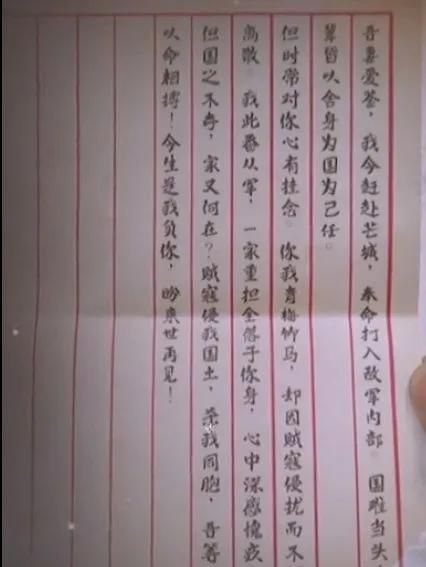 吾妻爱鉴，我今赶赴芒城，奉命打入敌军内部。国难当头，
辈皆以舍身为国为己任。
但时常对你心有挂念。你我青梅竹马，却因贼寇侵扰而不
离散。我此番从军，一家重担全落于你身，心中深感愧疚
但国之不存，家又何在？贼寇侵我国土，杀我同胞，吾等
以命相搏！今生是我负你，盼来世再见！